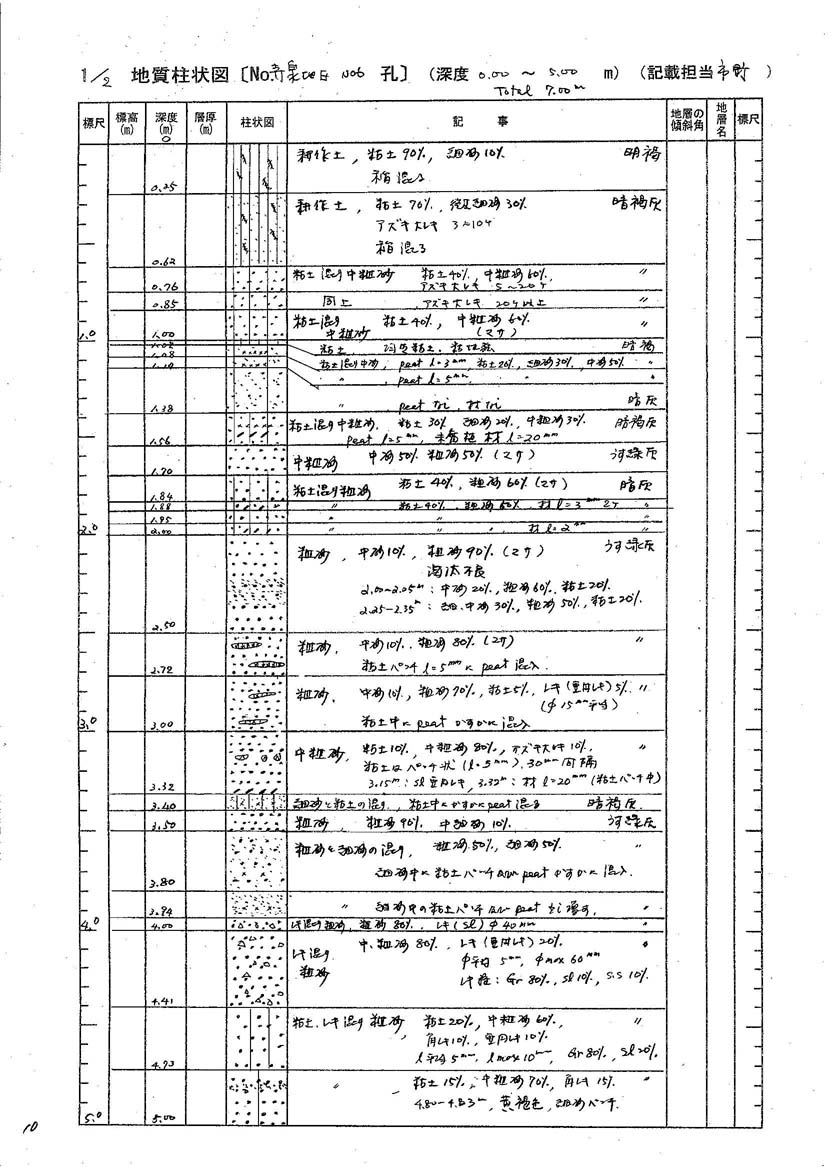 1/2 地質柱状図〔No 寺泉地区 No6 孔〕 (深度 0.00 〜 5.00 m) (記載担当 市野 )
Total 7.00m
標尺 標高(m) 深度(m) 層厚(m) 柱状図 記事 地層の傾斜角 地層名 標尺
0
耕作土, 粘土90%, 細砂10% 明褐
0.25
耕作土, 粘土70%, 細砂30% 暗褐灰
アズキ大レキ 3〜10ケ
0.62
粘土混り中粗砂 粘土40%, 中粗砂60% 〃
0.76 アズキ大レキ 5〜20ケ
0.85 同上 アズキ大レキ 20ケ以上
粘土混り 粘土40%, 中粗砂60% 〃
1.0 1.00 中粗砂 (マサ)
1.02 粘土, 暗褐
1.08 粘土混り中砂, peat l=3mm, 粘土20%, 細砂30%, 中砂50% 〃
1.10 〃 , peat l=5mm, 〃
1.38 〃 peatなし, 材なし 暗灰
粘土混り中粗砂, 粘土30% 細砂20%, 中粗砂30% 暗褐灰
1.56 peat l=5mm, 未腐植材 l=20mm
中粗砂 中砂50% 粗砂50% (マサ) うす緑灰
1.70
1.84 粘土混り粗砂 粘土40%, 粗砂60% (マサ) 暗灰
1.88 〃 粘土40%, 粗砂60%, 材 l=3mm 2ケ 〃
1.95 〃 〃 〃
2.0 2.00 〃 〃, 材 l=2mm 〃
粗砂, 中砂10%, 粗砂90% (マサ) うす緑灰
淘汰不良
2.00-2.05m: 中砂20%, 粗砂60%, 粘土20%
2.25-2.35m: 細・中砂30%, 粗砂50%, 粘土20%
2.50
粗砂, 中砂10%, 粗砂80% (マサ) 〃
2.72 粘土パッチ l=5mmにpeat混入
粗砂, 中砂10%, 粗砂70%, 粘土5%, レキ(亜角レキ)5% 〃
(φ15mm平均)
3.0 3.00 粘土中にpeatかすかに混入
中粗砂, 粘土10%, 中粗砂80%, アズキ大レキ10% 〃
粘土はパッチ状 (l=5mm), 30mm間隔
3.32 3.15m: Sl 亜角レキ, 3.32m: 材 l=20mm (粘土パッチ中)
3.40 細砂と粘土の混り, 粘土中にかすかにpeat混る 暗褐灰
3.50 粗砂, 粗砂90% 中細砂10% うす緑灰
粗砂と細砂の混り, 粗砂50%, 細砂50% 〃
3.80 細砂中に粘土パッチ及びpeatかすかに混入
3.94 〃 細砂中の粘土パッチ及びpeat 〃
4.0 4.00 レキ混り粗砂, 粗砂80%, レキ(Sl) φ40mm 〃
レキ混り粗砂 中、粗砂80%, レキ(亜角レキ)20% 〃
φ平均5mm, φmax60mm
4.41 レキ種: Gr80%, Sl10%, S.S10%
粘土、レキ混り粗砂 粘土20%, 中粗砂60%, 〃
角レキ10%, 亜角レキ10%
4.73 l平均5mm, lmax10mm, Gr80%, Sl20%
〃 粘土15%, 中粗砂70%, 角レキ15% 〃
5.0 5.00 4.80-4.83m, 黄褐色, 細砂パッチ
10